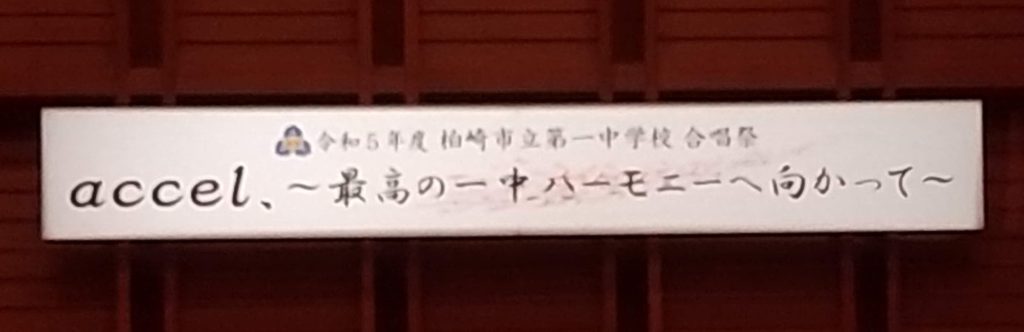 令和5年度 柏崎市立第一中学校 合唱祭
accel、～最高の一中ハーモニーへ向かって～